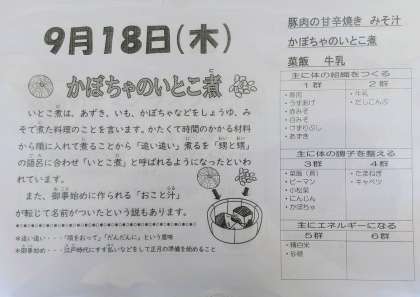 9月18日(木)
かぼちゃのいとこ煮
いとこ煮は、あずき、いも、かぼちゃなどをしょうゆ、み
そで煮た料理のことを言います。かたくて時間のかかる材料
から順に入れて煮ることから「追い追い」煮るを「甥と甥」
の語呂に合わせ「いとこ煮」と呼ばれるようになったといわ
れています。
また、御事始めに作られる「おこと汁」
が転じて名前がついたという説もあります。
*追い追い・・・「順をおって」「だんだんに」という意味
*御事始め・・・江戸時代にすす払いなどをして正月の準備を始めること
豚肉の甘辛焼き みそ汁
かぼちゃのいとこ煮
菜飯 牛乳
主に体の組織をつくる
1群 2群
・豚肉 ・牛乳
・うすあげ ・だしこんぶ
・赤みそ
・白みそ
・けずりぶし
・あずき
主に体の調子を整える
3群 4群
・菜飯(具) ・たまねぎ
・ピーマン ・キャベツ
・小松菜
・にんじん
・かぼちゃ
主にエネルギーになる
5群 6群
・精白米
・砂糖